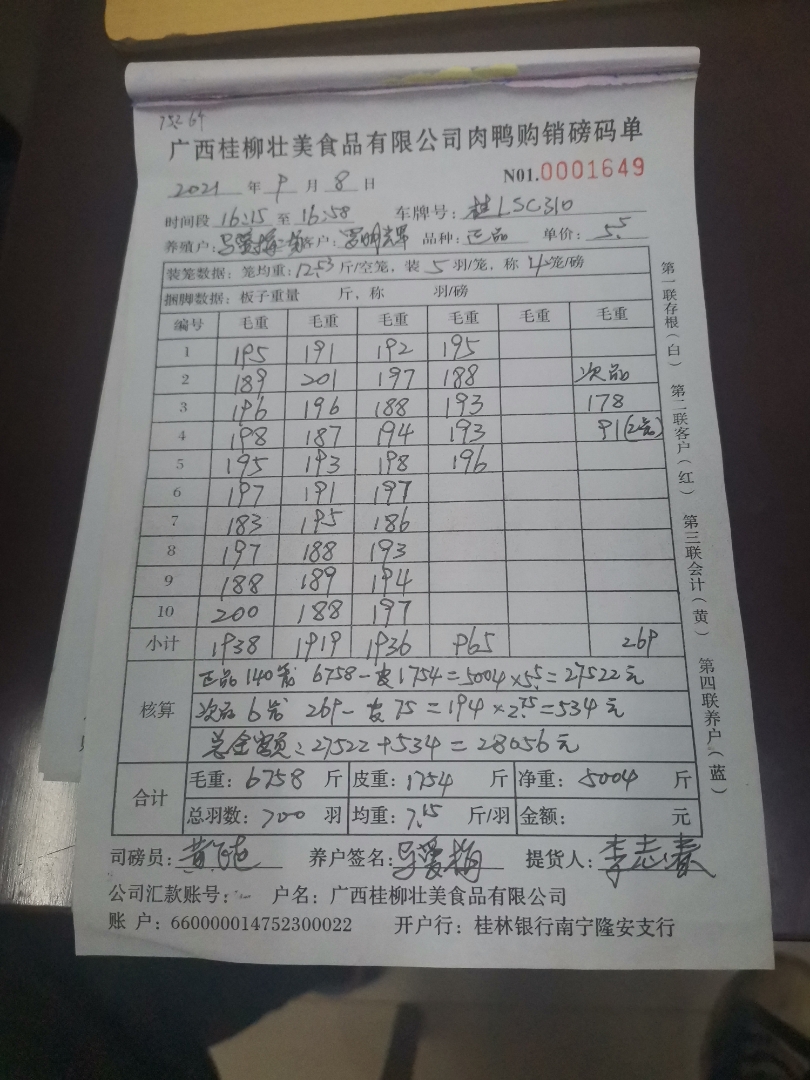 752 64
广西桂柳壮美食品有限公司肉鸭购销磅码单
N01.0001649
2021 年 9 月 8 日
时间段 16:15 至 16:58 车牌号: 桂LSC310
养殖户: 客户: 罗明辉 品种: 正品 单价: 5.5
装笼数据: 笼均重: 12.53 斤/空笼, 装 5 羽/笼, 称 4 笼/磅
捆脚数据: 板子重量 斤, 称 羽/磅
编号 毛重 毛重 毛重 毛重 毛重 毛重
1 195 191 192 195
2 189 201 197 188 次品
3 196 196 188 193 178
4 198 187 194 193 91(2笼)
5 195 193 198 196
6 197 191 197
7 183 195 186
8 197 188 193
9 188 189 194
10 200 188 197
小计 1938 1919 1936 965 269
核算
正品140笼 6758-皮1754=5004×5.5=27522元
次品6笼 269-皮75=194×2.75=534元
总金额:27522+534=28056元
合计
毛重: 6758 斤 皮重: 1754 斤 净重: 5004 斤
总羽数: 700 羽 均重: 7.15 斤/羽 金额: 元
司磅员: 养户签名: 提货人: 李志春
公司汇款账号: 户名: 广西桂柳壮美食品有限公司
账 户: 660000014752300022 开户行: 桂林银行南宁隆安支行
第一联存根(白) 第二联客户(红) 第三联会计(黄) 第四联养户(蓝)